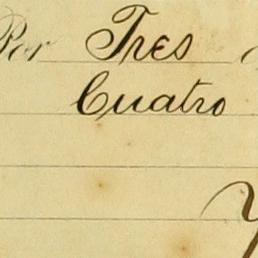 Por Tres
Cuatro